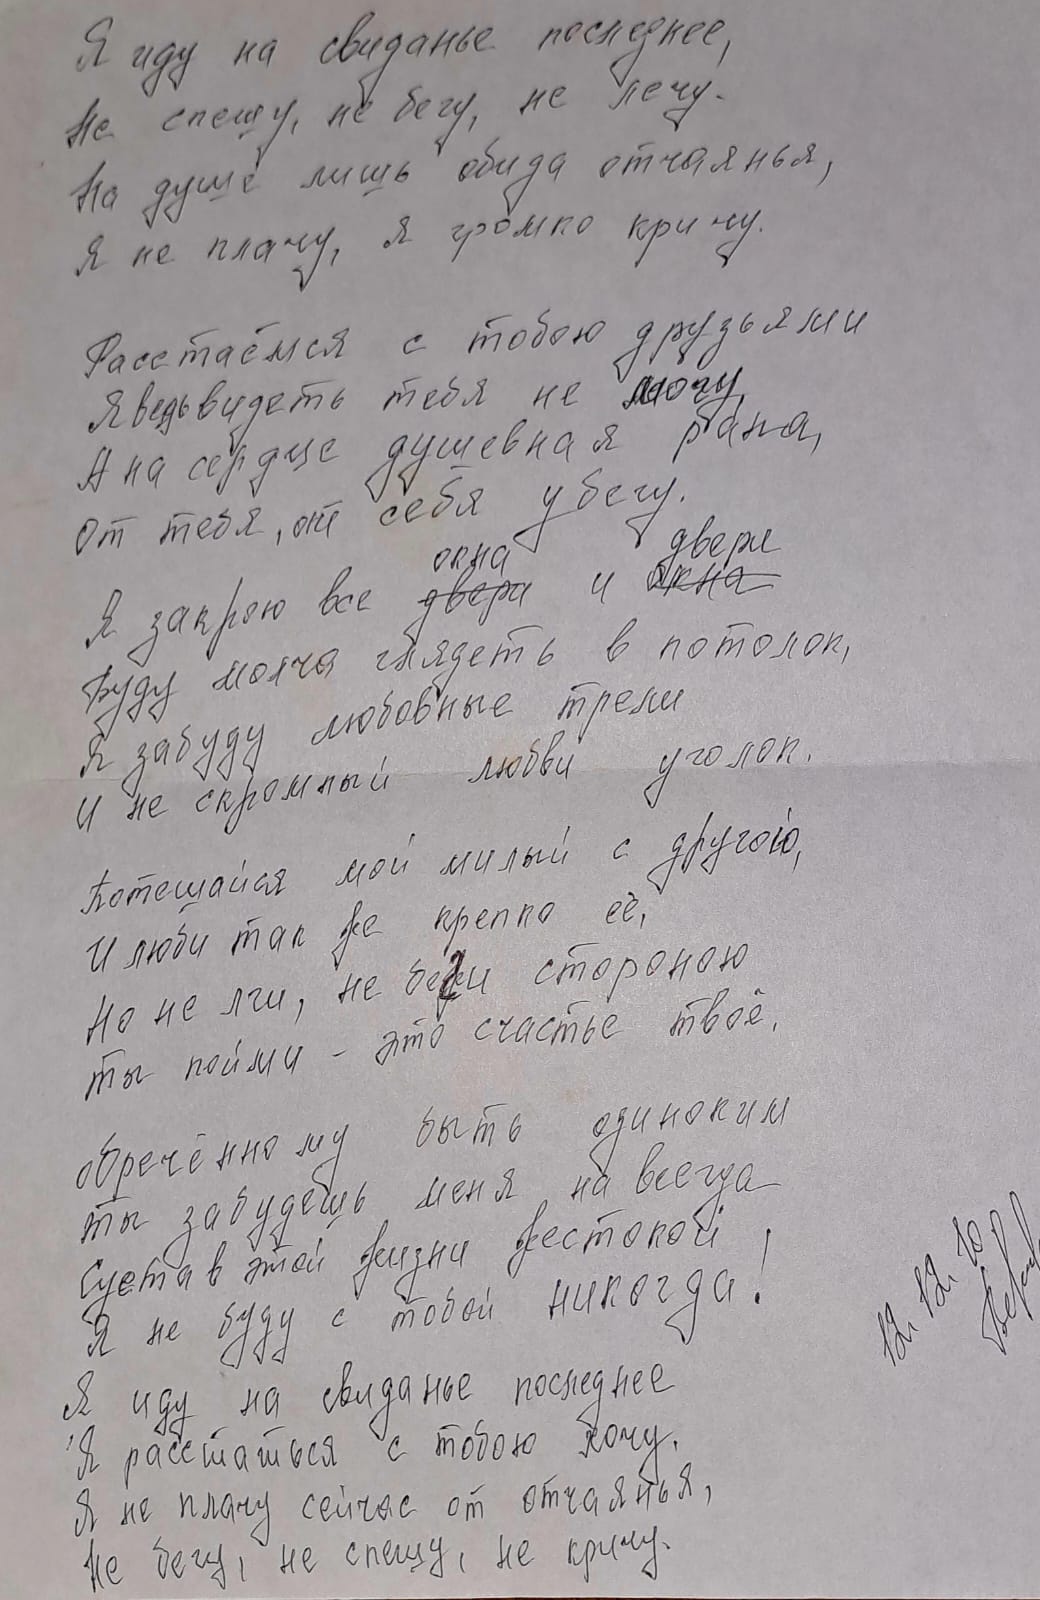 Я иду на свиданье последнее,
Не спешу, не бегу, не лечу.
На душе лишь обида отчаянья,
Я не плачу, я громко кричу.
Расстаёмся с тобою друзьями
Я ведь видеть тебя не могу,
А на сердце душевная рана,
От тебя, от себя убегу.
окна двери
Я закрою все двери и окна
Буду молча глядеть в потолок,
Я забуду любовные трели
И не скромный любви уголок.
Потешайся мой милый с другою,
И люби так же крепко её,
Но не лги, не беги стороною
Ты пойми - это счастье твоё.
Обречённому быть одиноким
Ты забудешь меня на всегда
Суета в этой жизни жестокой
Я не буду с тобой никогда!
Я иду на свиданье последнее
Я расстаться с тобою хочу.
Я не плачу сейчас от отчаянья,
Не бегу, не спешу, не кричу.
12. 12. 10